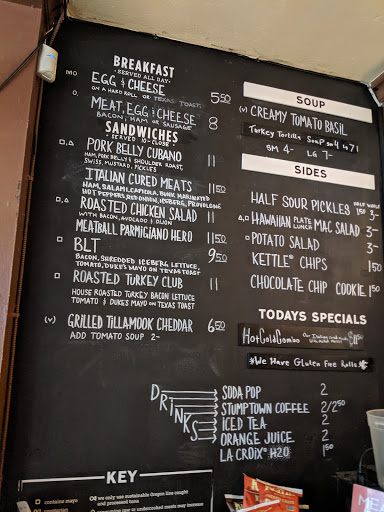 BREAKFAST
· SERVED ALL DAY ·
EGG & CHEESE 5.50
ON A HARD ROLL OR TEXAS TOAST
MEAT, EGG & CHEESE 8
BACON, HAM OR SAUSAGE
SANDWICHES
· SERVED 10- CLOSE ·
PORK BELLY CUBANO 11.50
HAM, PORK BELLY & SHOULDER ROAST,
SWISS, MUSTARD, PICKLES
ITALIAN CURED MEATS 11.50
HAM, SALAMI, CAPICOLA, DUKES, MARINATED
HOT PEPPERS, RED ONION, ICEBERG, PROVOLONE
ROASTED CHICKEN SALAD 11
WITH BACON, AVOCADO &
MEATBALL PARMIGIANO HERO 11.50
BLT 9.50
BACON, SHREDDED ICEBERG LETTUCE,
TOMATO, DUKE'S MAYO ON TEXAS TOAST
ROASTED TURKEY CLUB 11
HOUSE ROASTED TURKEY BACON LETTUCE
TOMATO & DUKE'S MAYO ON TEXAS TOAST
(V) GRILLED TILLAMOOK CHEDDAR 6.50
ADD TOMATO SOUP 2-
SOUP
(V) CREAMY TOMATO BASIL
Turkey Tortilla Soup sm4 Lg7!
SM 4- LG 7-
SIDES
HALF WHOLE
HALF SOUR PICKLES 1.50 3
HAWAIIAN PLATE LUNCH MAC SALAD 3
POTATO SALAD 3
KETTLE® CHIPS 1.50
CHOCOLATE CHIP COOKIE 1.50
TODAYS SPECIALS
Hot Gold Comino Our Italian
*We Have Gluten Free Rolls*
DRINKS
SODA POP 2
STUMPTOWN COFFEE 2/2.50
ICED TEA 2
ORANGE JUICE 2
LA CROIX H2O 1.50
KEY
contains mayo
vegetarian
we only use sustainable Oregon line caught
and processed tuna
consuming raw or undercooked meats may increase